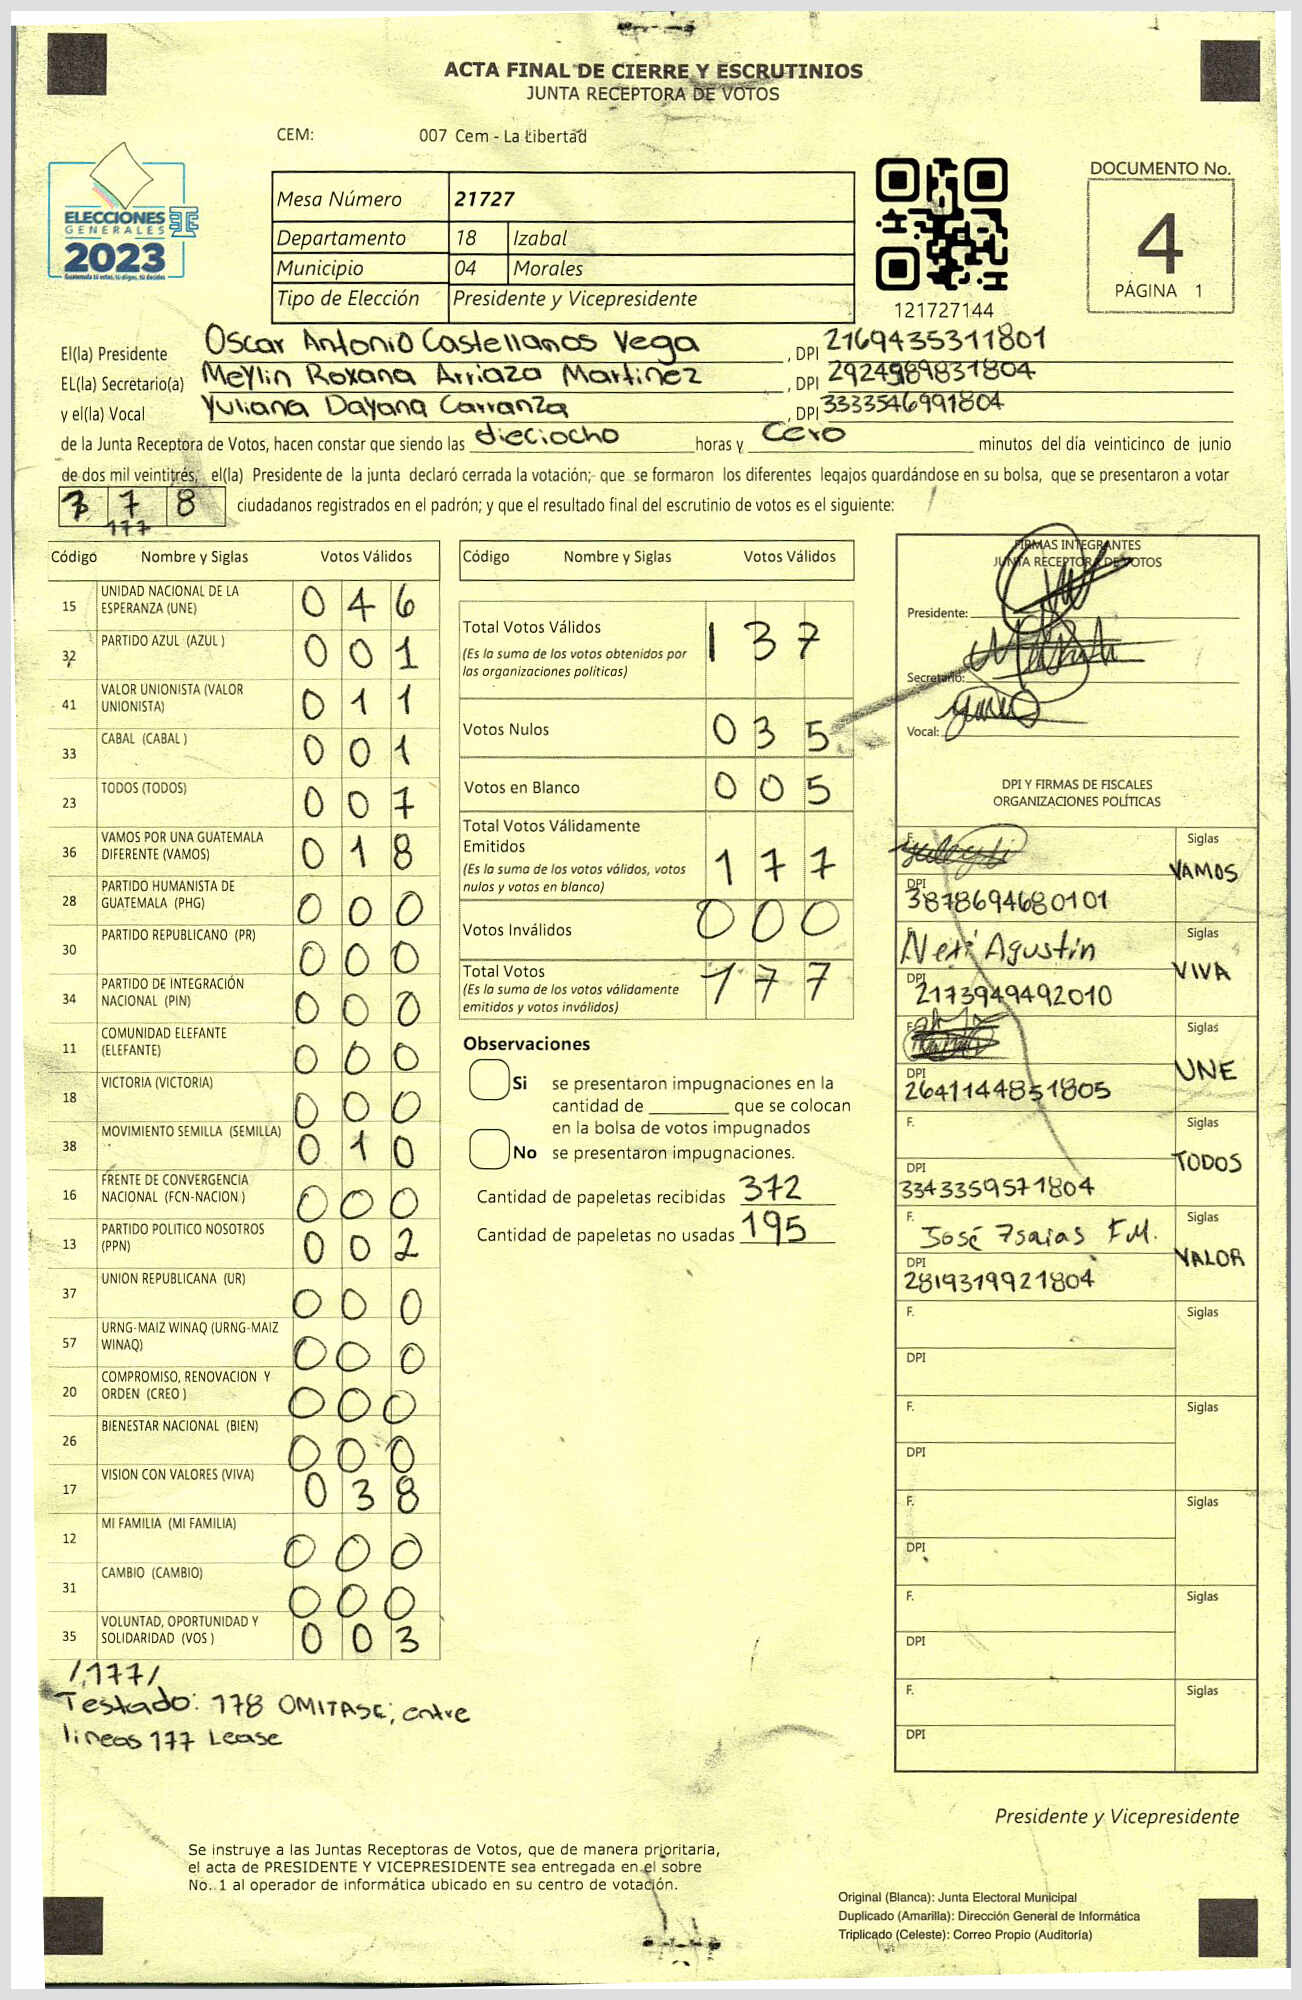 ACTA FINAL DE CIERRE Y ESCRUTINIOS
JUNTA RECEPTORA DE VOTOS
CEM: 007 Cem - La Libertad
ELECCIONES
GENERALES
2023
Guatemala tú votas, tú eliges, tú decides
Mesa Número 21727
Departamento 18 Izabal
Municipio 04 Morales
Tipo de Elección Presidente y Vicepresidente
121727144
DOCUMENTO No.
4
PÁGINA 1
El(la) Presidente Oscar Antonio Castellanos Vega, DPI 2169435311801
EL(la) Secretario(a) Meylin Roxana Arriaza Martinez, DPI 2924989831804
y el(la) Vocal Yuliana Dayana Carranza, DPI 3333546991804
de la Junta Receptora de Votos, hacen constar que siendo las dieciocho horas y cero minutos del día veinticinco de junio
de dos mil veintitrés; el(la) Presidente de la junta declaró cerrada la votación; que se formaron los diferentes legajos guardándose en su bolsa, que se presentaron a votar
7 8 ciudadanos registrados en el padrón; y que el resultado final del escrutinio de votos es el siguiente:
177
Código Nombre y Siglas Votos Válidos
15 UNIDAD NACIONAL DE LA ESPERANZA (UNE) 0 4 6
32 PARTIDO AZUL (AZUL ) 0 0 1
41 VALOR UNIONISTA (VALOR UNIONISTA) 0 1 1
33 CABAL (CABAL ) 0 0 1
23 TODOS (TODOS) 0 0 7
36 VAMOS POR UNA GUATEMALA DIFERENTE (VAMOS) 0 1 8
28 PARTIDO HUMANISTA DE GUATEMALA (PHG) 0 0 0
30 PARTIDO REPUBLICANO (PR) 0 0 0
34 PARTIDO DE INTEGRACIÓN NACIONAL (PIN) 0 0 0
11 COMUNIDAD ELEFANTE (ELEFANTE) 0 0 0
18 VICTORIA (VICTORIA) 0 0 0
38 MOVIMIENTO SEMILLA (SEMILLA) 0 1 0
16 FRENTE DE CONVERGENCIA NACIONAL (FCN-NACION ) 0 0 0
13 PARTIDO POLITICO NOSOTROS (PPN) 0 0 2
37 UNION REPUBLICANA (UR) 0 0 0
57 URNG-MAIZ WINAQ (URNG-MAIZ WINAQ) 0 0 0
20 COMPROMISO, RENOVACION Y ORDEN (CREO ) 0 0 0
26 BIENESTAR NACIONAL (BIEN) 0 0 0
17 VISION CON VALORES (VIVA) 0 3 8
12 MI FAMILIA (MI FAMILIA) 0 0 0
31 CAMBIO (CAMBIO) 0 0 0
35 VOLUNTAD, OPORTUNIDAD Y SOLIDARIDAD (VOS ) 0 0 3
/177/
Testado: 178 OMITASE; entre
lineas 177 Lease
Código Nombre y Siglas Votos Válidos
Total Votos Válidos 1 3 7
(Es la suma de los votos obtenidos por
las organizaciones políticas)
Votos Nulos 0 3 5
Votos en Blanco 0 0 5
Total Votos Válidamente
Emitidos 1 7 7
(Es la suma de los votos válidos, votos
nulos y votos en blanco)
Votos Inválidos 0 0 0
Total Votos 1 7 7
(Es la suma de los votos válidamente
emitidos y votos inválidos)
Observaciones
Si se presentaron impugnaciones en la
cantidad de ________ que se colocan
en la bolsa de votos impugnados
No se presentaron impugnaciones.
Cantidad de papeletas recibidas 372
Cantidad de papeletas no usadas 195
FIRMAS INTEGRANTES
JUNTA RECEPTORA DE VOTOS
Presidente:
Secretario:
Vocal:
DPI Y FIRMAS DE FISCALES
ORGANIZACIONES POLÍTICAS
F. Siglas VAMOS
DPI 3878694680101
F. Nexi Agustin Siglas VIVA
DPI 2173949492010
F. Siglas UNE
DPI 2641144851805
F. Siglas TODOS
DPI 3343359571804
F. José Isaias F.M. Siglas VALOR
DPI 2819319921804
F. Siglas
DPI
F. Siglas
DPI
F. Siglas
DPI
F. Siglas
DPI
F. Siglas
DPI
Presidente y Vicepresidente
Se instruye a las Juntas Receptoras de Votos, que de manera prioritaria,
el acta de PRESIDENTE Y VICEPRESIDENTE sea entregada en el sobre
No. 1 al operador de informática ubicado en su centro de votación.
Original (Blanca): Junta Electoral Municipal
Duplicado (Amarilla): Dirección General de Informática
Triplicado (Celeste): Correo Propio (Auditoría)